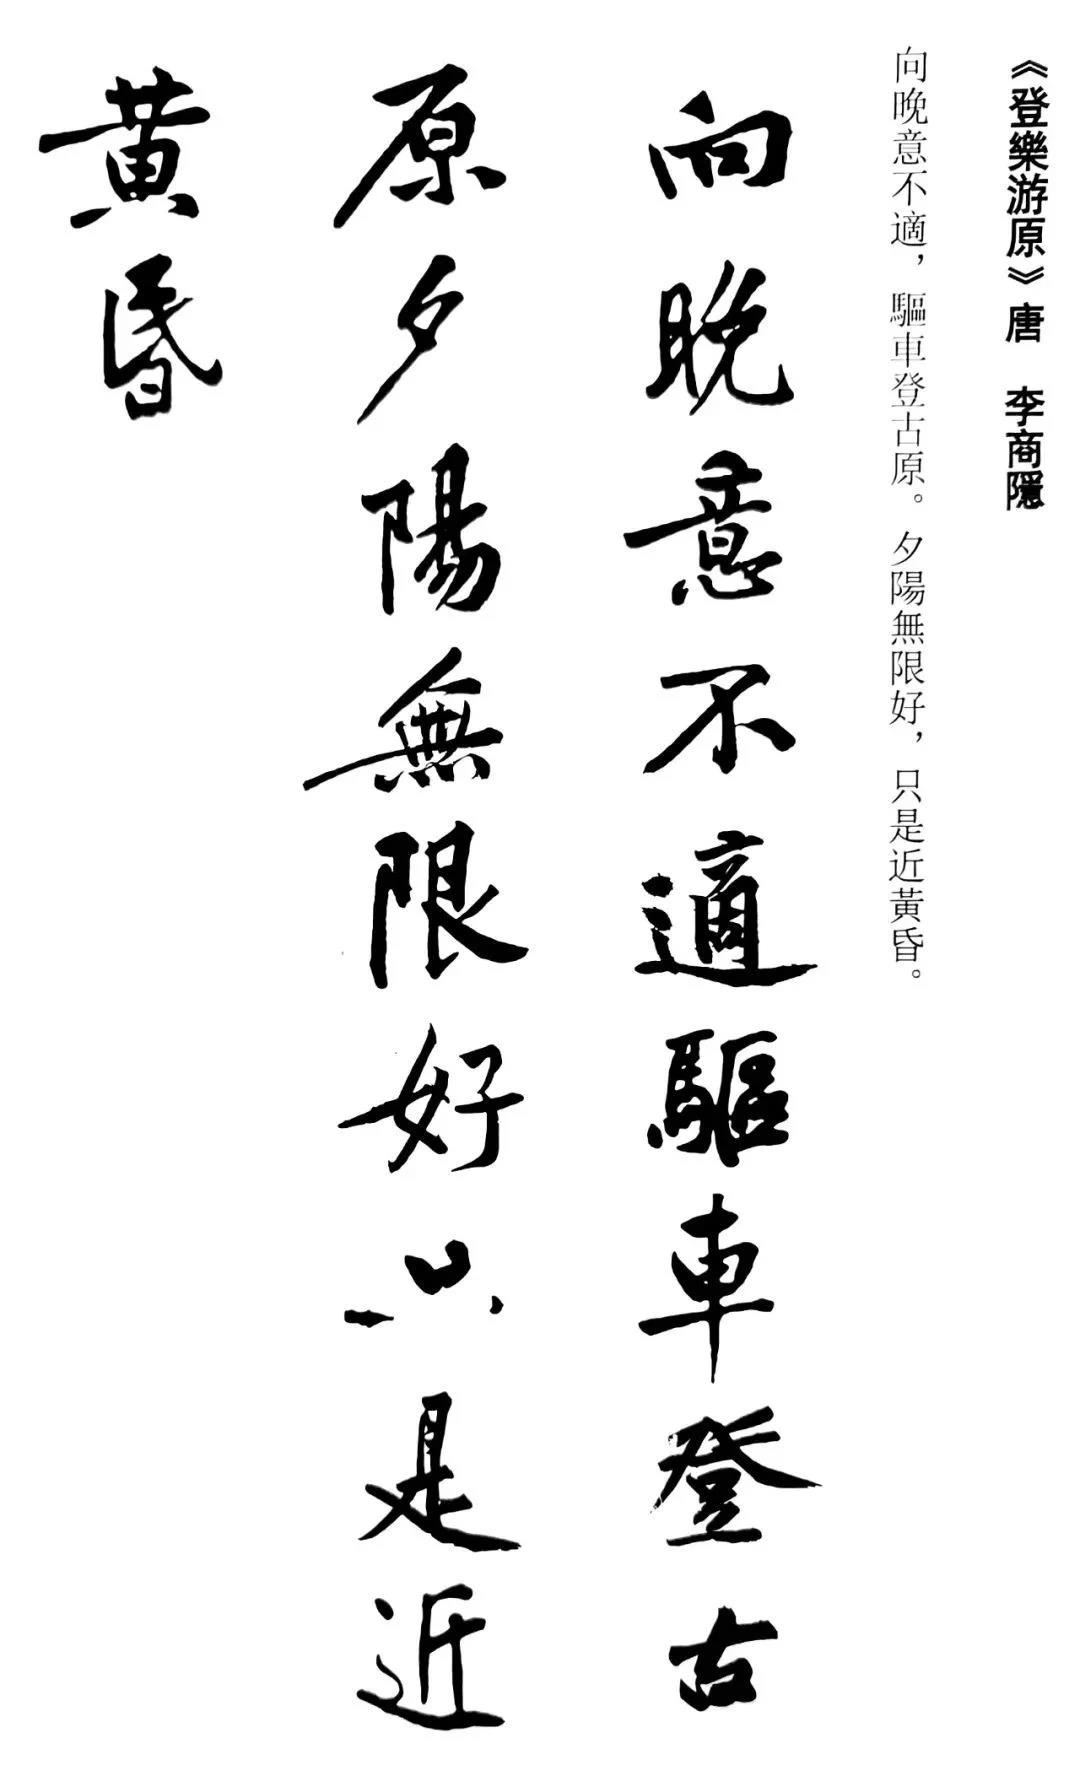 《登樂游原》唐 李商隱
向晚意不適，驅車登古原。夕陽無限好，只是近黃昏。
向晚意不適驅車登古
原夕陽無限好只是近
黃昏